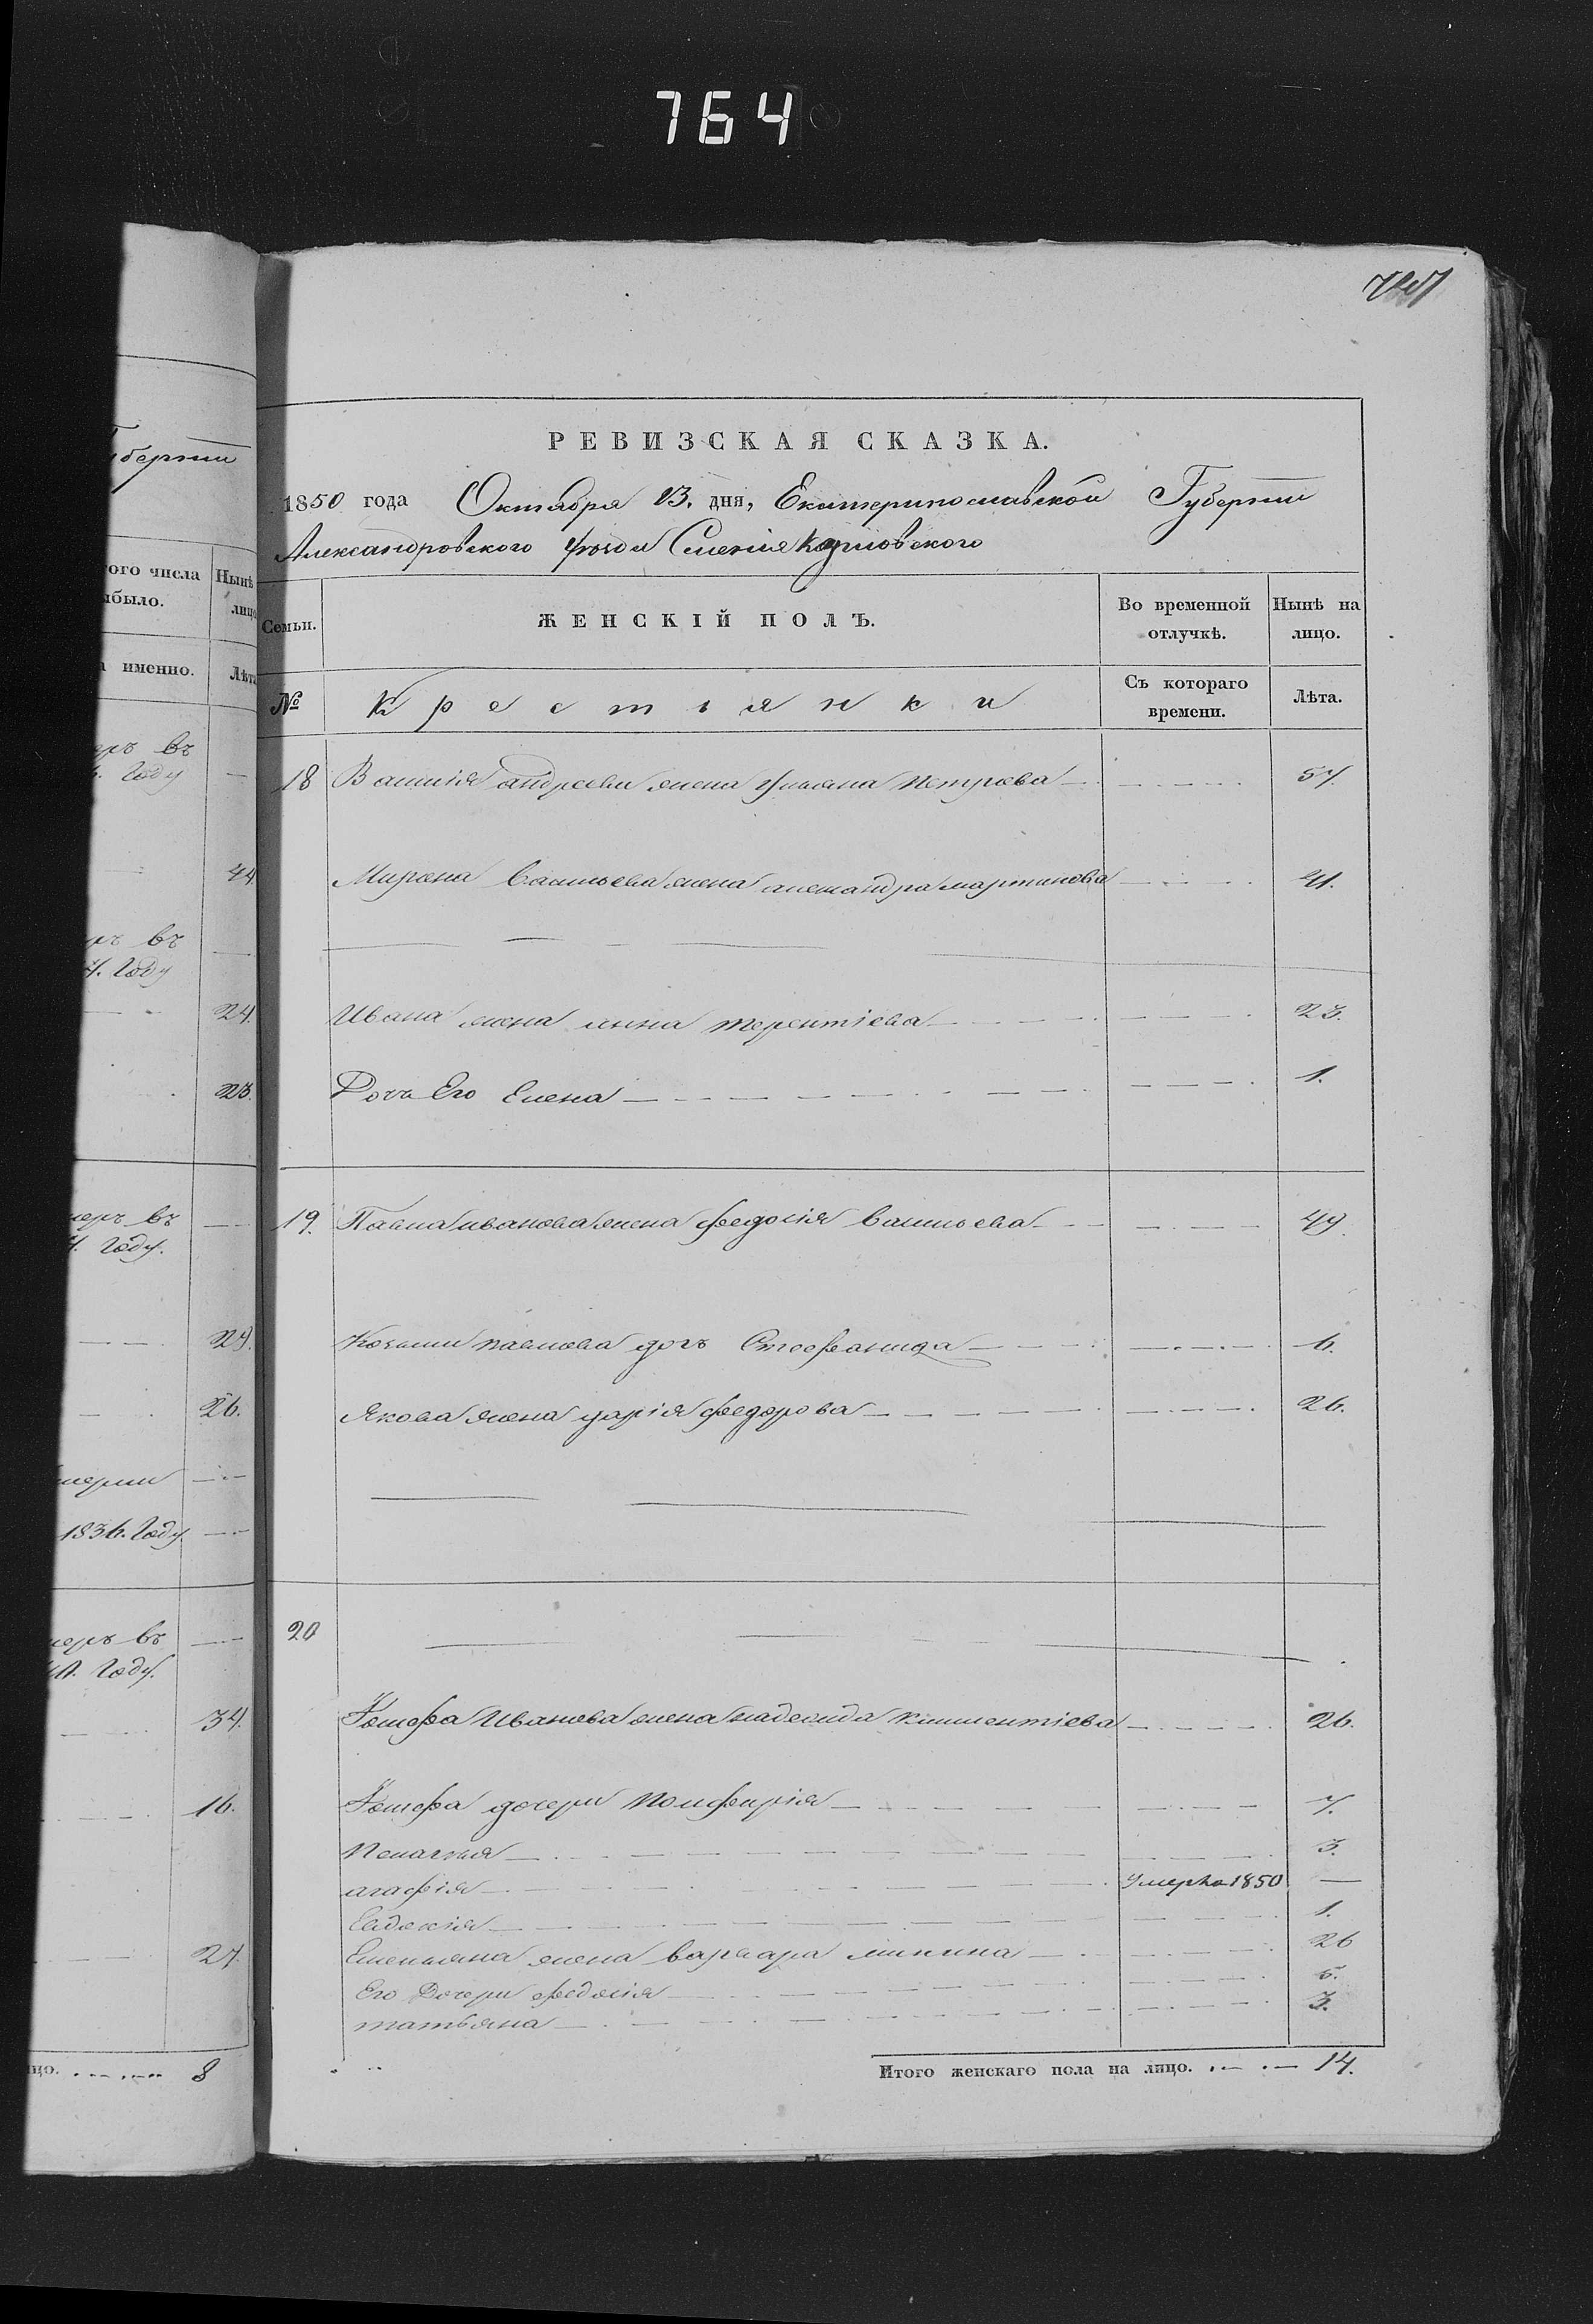 764
РЕВИЗСКАЯ СКАЗКА.
1850 года Октября 23. дня, Екатеринославской Губернии
Александровского уезда
Семьи.
ЖЕНСКІЙ ПОЛЪ.
Во временной отлучкѣ.
Нынѣ на лицо.
№
Крестіянки
Съ котораго времени.
Лѣта.
18 Васили андреева жена Ульяна Петрова 57.
Мирона Васильева жена александра мартинова 41.
Ивана жена анна терентіева 23.
Дочь Его Елена 1.
19. Павла иванова жена федосія Васильева 49.
Козьми павлова дочь Стефанида 6.
Якова жена дарія федорова 26.
20
Іосифа Иванова жена надежда климентіева 26.
Іосифа дочери 7.
Пелагия 3.
агафія умерла 1850 —
Евдокія 1.
Емельяна жена варвара минина 26
Его Дочери федосія 5.
татьяна 3.
Итого женскаго пола на лицо. 14.
губернии
ого числа
Нынѣ
ыбыло.
лицо
именно.
Лѣта
въ
Году
44.
въ
Году
24.
23.
въ
Году.
29.
26.
1836. Году
въ
Году.
34.
16.
27.
цо. 8